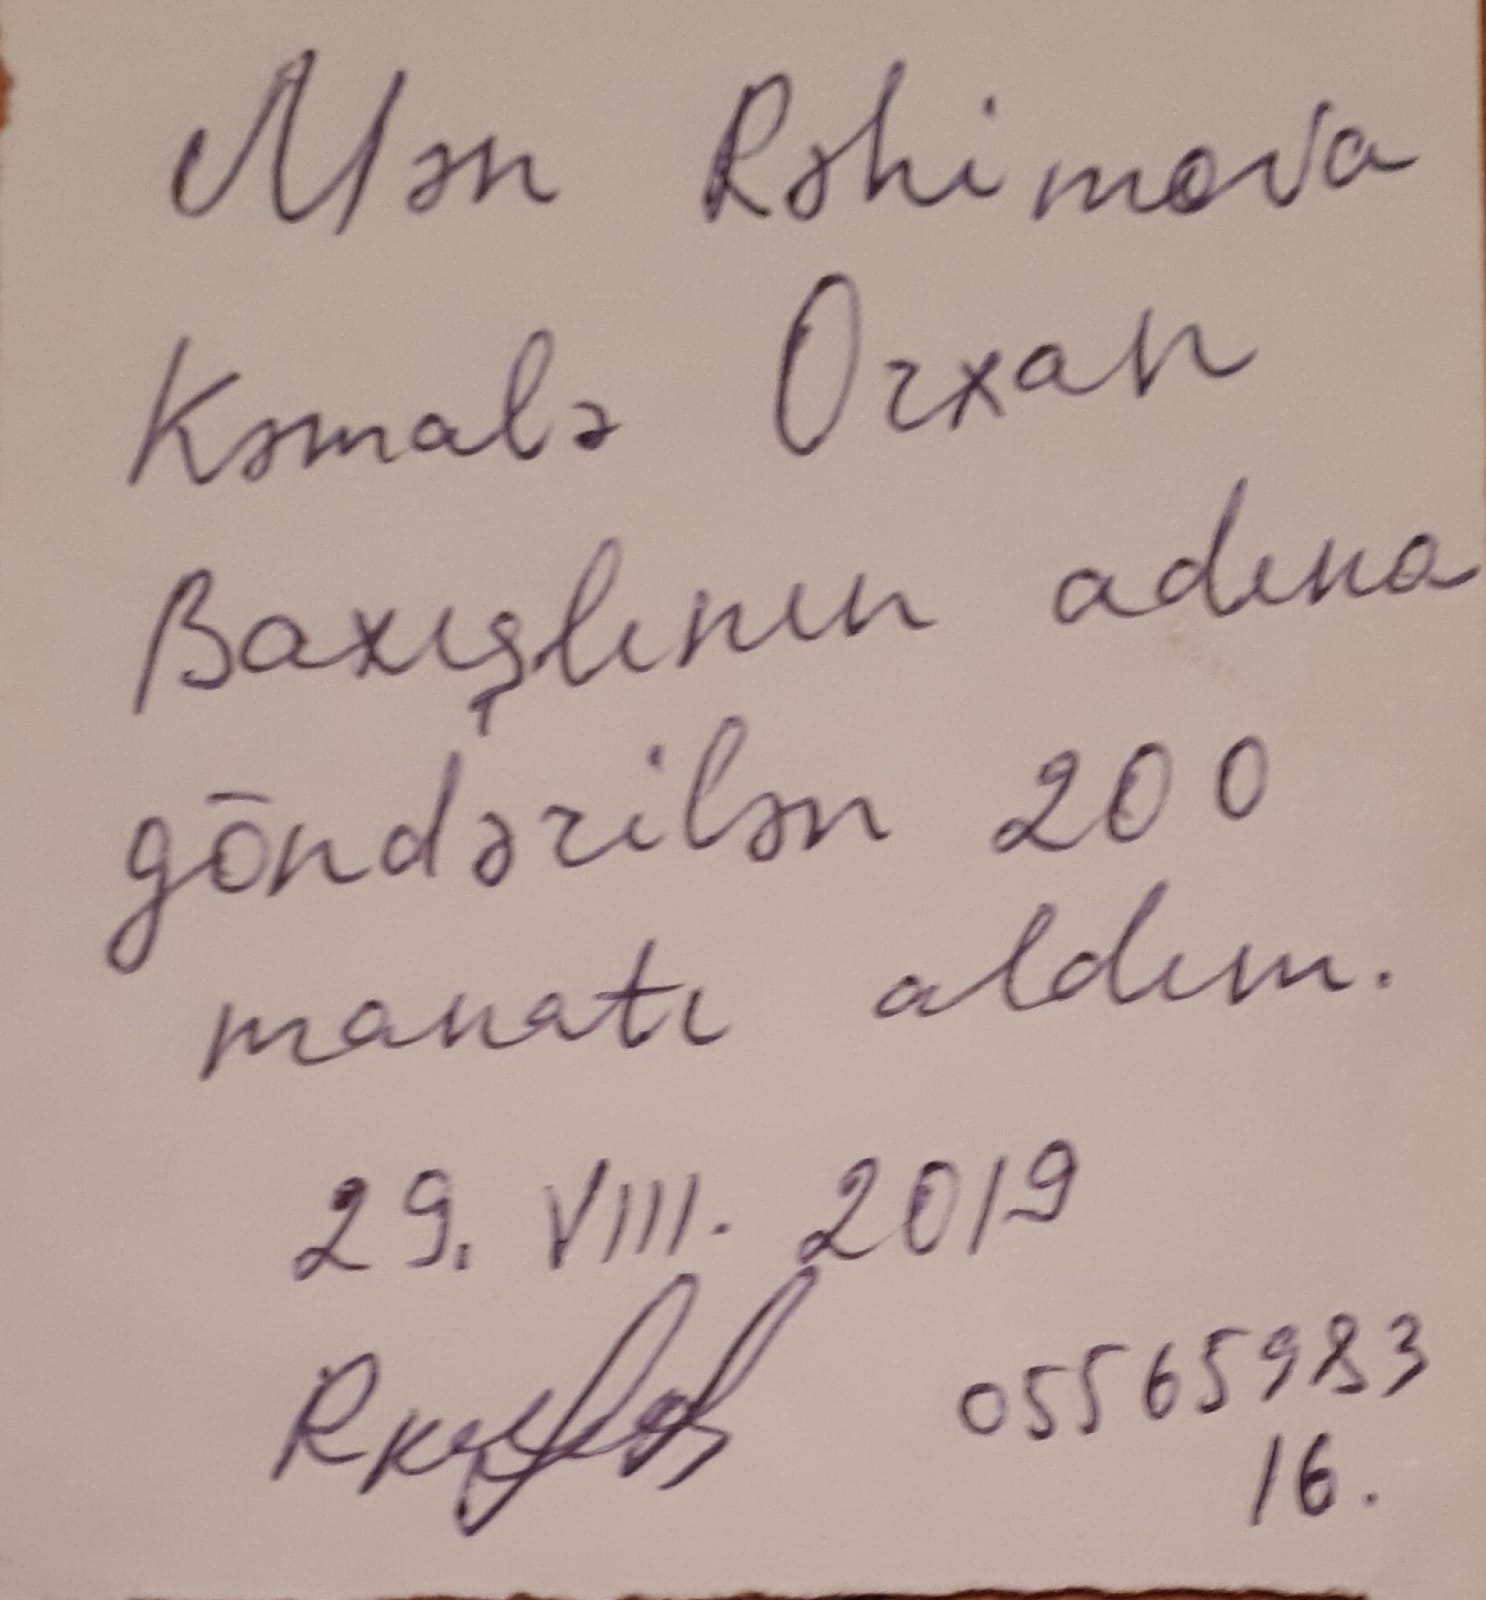 Mən Rəhimova
Kəmalə Orxan
Baxışlının adına
göndərilən 200
manatı aldım.
29. VIII. 2019
05565983
16.